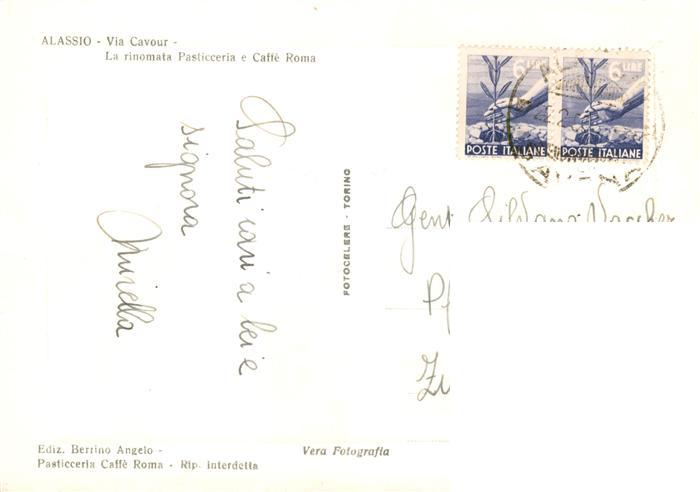 ALASSIO - Via Cavour -
La rinomata Pasticceria e Caffè Roma
6 LIRE
POSTE ITALIANE
6 LIRE
POSTE ITALIANE
Saluti cari a lei e
signora
Mirella
FOTOCELERE - TORINO
Gent Silvano
Ediz. Berrino Angelo -
Pasticceria Caffè Roma - Rip. interdetta
Vera Fotografia